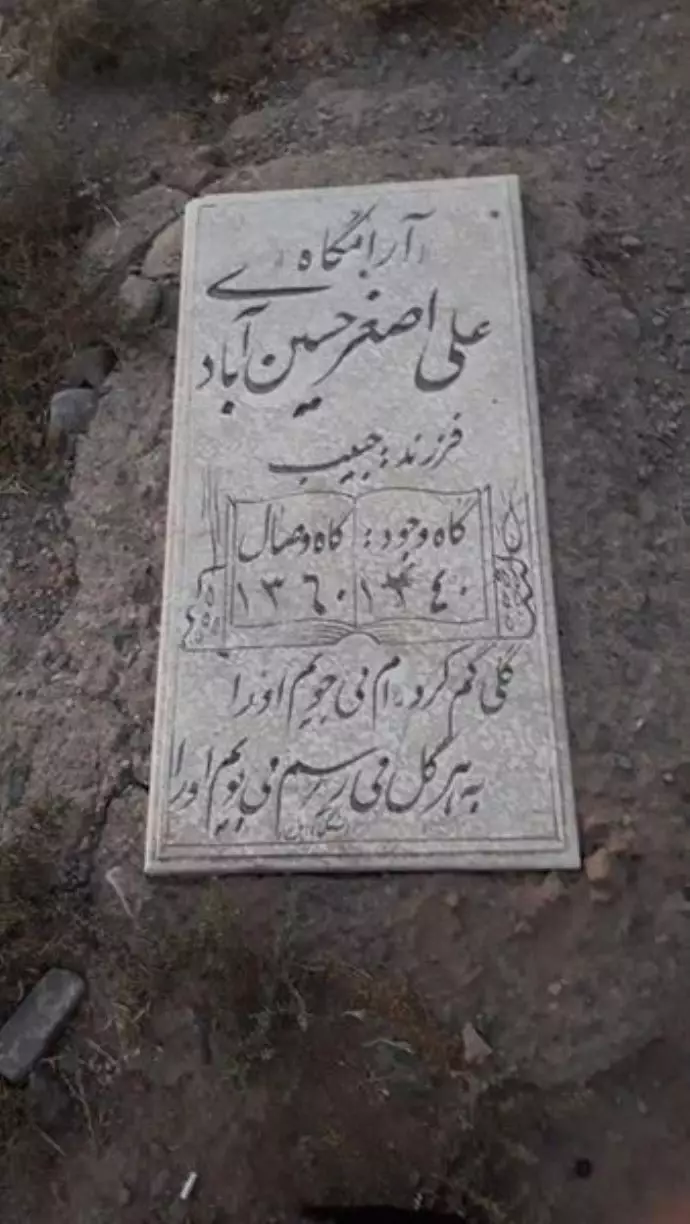 آرامگاه
علی اصغر حسین آبادی
فرزند: حبیب
گاه وجود: گاه وصال
۱۳۴۰ ۱۳۶۰
گلی گم کرده ام می جویم اورا
به هر گل می رسم می بویم اورا